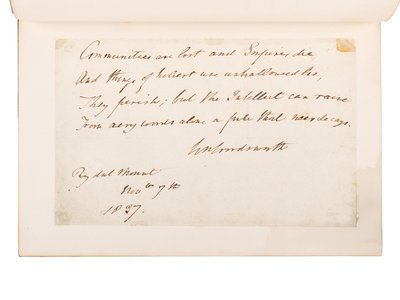 Communities are lost and Empires die
And things of holiest use unhallowed lie;
They perish; but the Intellect can raise
From airy words alone a pile that ne'er decays.
Wm Wordsworth
Rydal Mount
Novbr 9th
1837.